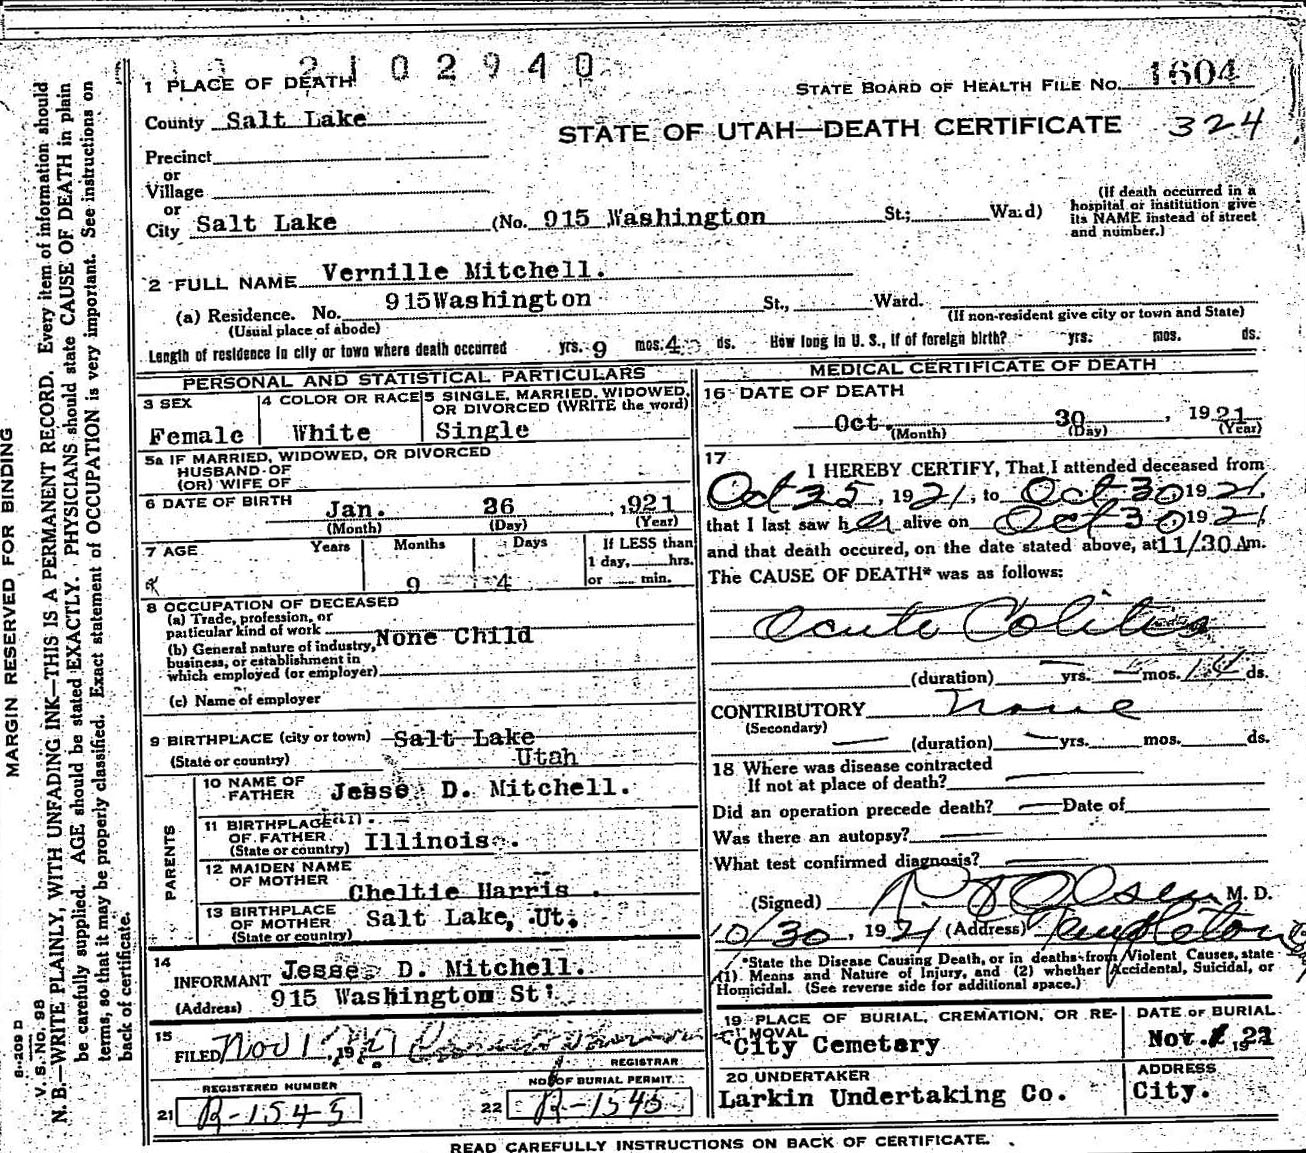 2102940
1 PLACE OF DEATH
STATE BOARD OF HEALTH FILE NO. 1604
County Salt Lake
STATE OF UTAH—DEATH CERTIFICATE 324
Precinct
or
Village
or
City Salt Lake (No. 915 Washington St.; Ward)
(If death occurred in a hospital or institution give its NAME instead of street and number.)
2 FULL NAME Vernille Mitchell.
(a) Residence. No. 915Washington St., Ward.
(Usual place of abode) (If non-resident give city or town and State)
Length of residence in city or town where death occurred yrs. 9 mos. 4 ds. How long in U. S., if of foreign birth? yrs. mos. ds.
PERSONAL AND STATISTICAL PARTICULARS
3 SEX
Female
4 COLOR OR RACE
White
5 SINGLE, MARRIED, WIDOWED,
OR DIVORCED (WRITE the word)
Single
5a IF MARRIED, WIDOWED, OR DIVORCED
HUSBAND OF
(OR) WIFE OF
6 DATE OF BIRTH Jan. 26 , 1921
(Month) (Day) (Year)
7 AGE Years Months Days
9 4
If LESS than
1 day, hrs.
or min.
8 OCCUPATION OF DECEASED
(a) Trade, profession, or
particular kind of work None Child
(b) General nature of industry,
business, or establishment in
which employed (or employer)
(c) Name of employer
9 BIRTHPLACE (city or town) Salt Lake
(State or country) Utah
PARENTS
10 NAME OF
FATHER Jesse D. Mitchell.
11 BIRTHPLACE
OF FATHER
(State or country) Illinois.
12 MAIDEN NAME
OF MOTHER Cheltie Harris.
13 BIRTHPLACE
OF MOTHER
(State or country) Salt Lake, Ut.
14
INFORMANT Jesse D. Mitchell.
(Address) 915 Washington St
15
FILED Nov 1 1921
REGISTRAR
REGISTERED NUMBER
21 R-1545
NO. OF BURIAL PERMIT
22 R-1545
MEDICAL CERTIFICATE OF DEATH
16 DATE OF DEATH
Oct. 30 , 1921
(Month) (Day) (Year)
17
I HEREBY CERTIFY, That I attended deceased from
Oct 25, 1921, to Oct 30 1921,
that I last saw her alive on Oct 30, 1921
and that death occured, on the date stated above, at 11/30 Am.
The CAUSE OF DEATH* was as follows:
Acute Colitis
(duration) yrs. mos. 14 ds.
CONTRIBUTORY None
(Secondary)
(duration) yrs. mos. ds.
18 Where was disease contracted
If not at place of death?
Did an operation precede death? Date of
Was there an autopsy?
What test confirmed diagnosis?
(Signed) Olsen M. D.
10/30, 1921 (Address) Templeton
*State the Disease Causing Death, or in deaths from Violent Causes, state
(1) Means and Nature of Injury, and (2) whether Accidental, Suicidal, or
Homicidal. (See reverse side for additional space.)
19 PLACE OF BURIAL, CREMATION, OR RE-
MOVAL
City Cemetary
DATE OF BURIAL
Nov. 1 1921
20 UNDERTAKER
Larkin Undertaking Co.
ADDRESS
City.
READ CAREFULLY INSTRUCTIONS ON BACK OF CERTIFICATE.
MARGIN RESERVED FOR BINDING
S-209 D
V. S. No. 98
N. B.—WRITE PLAINLY, WITH UNFADING INK—THIS IS A PERMANENT RECORD. Every item of information should
be carefully supplied. AGE should be stated EXACTLY. PHYSICIANS should state CAUSE OF DEATH in plain
terms, so that it may be properly classified. Exact statement of OCCUPATION is very important. See instructions on
back of certificate.